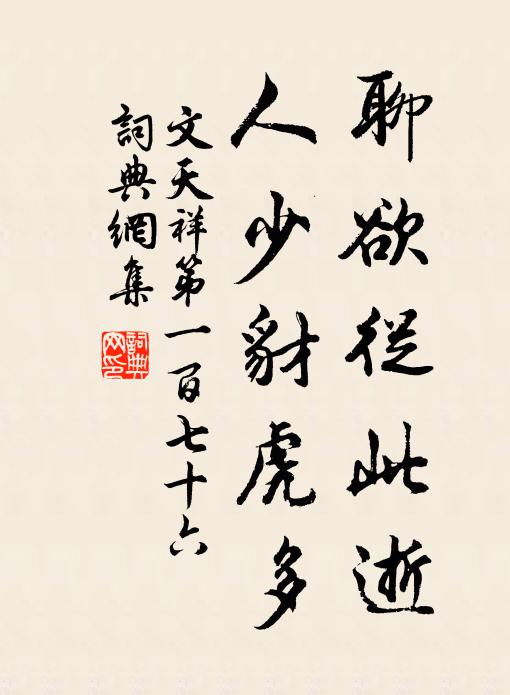 聊欲從此逝
人少豺虎多
文天祥第一百七十六
詞典網集
詞典網印